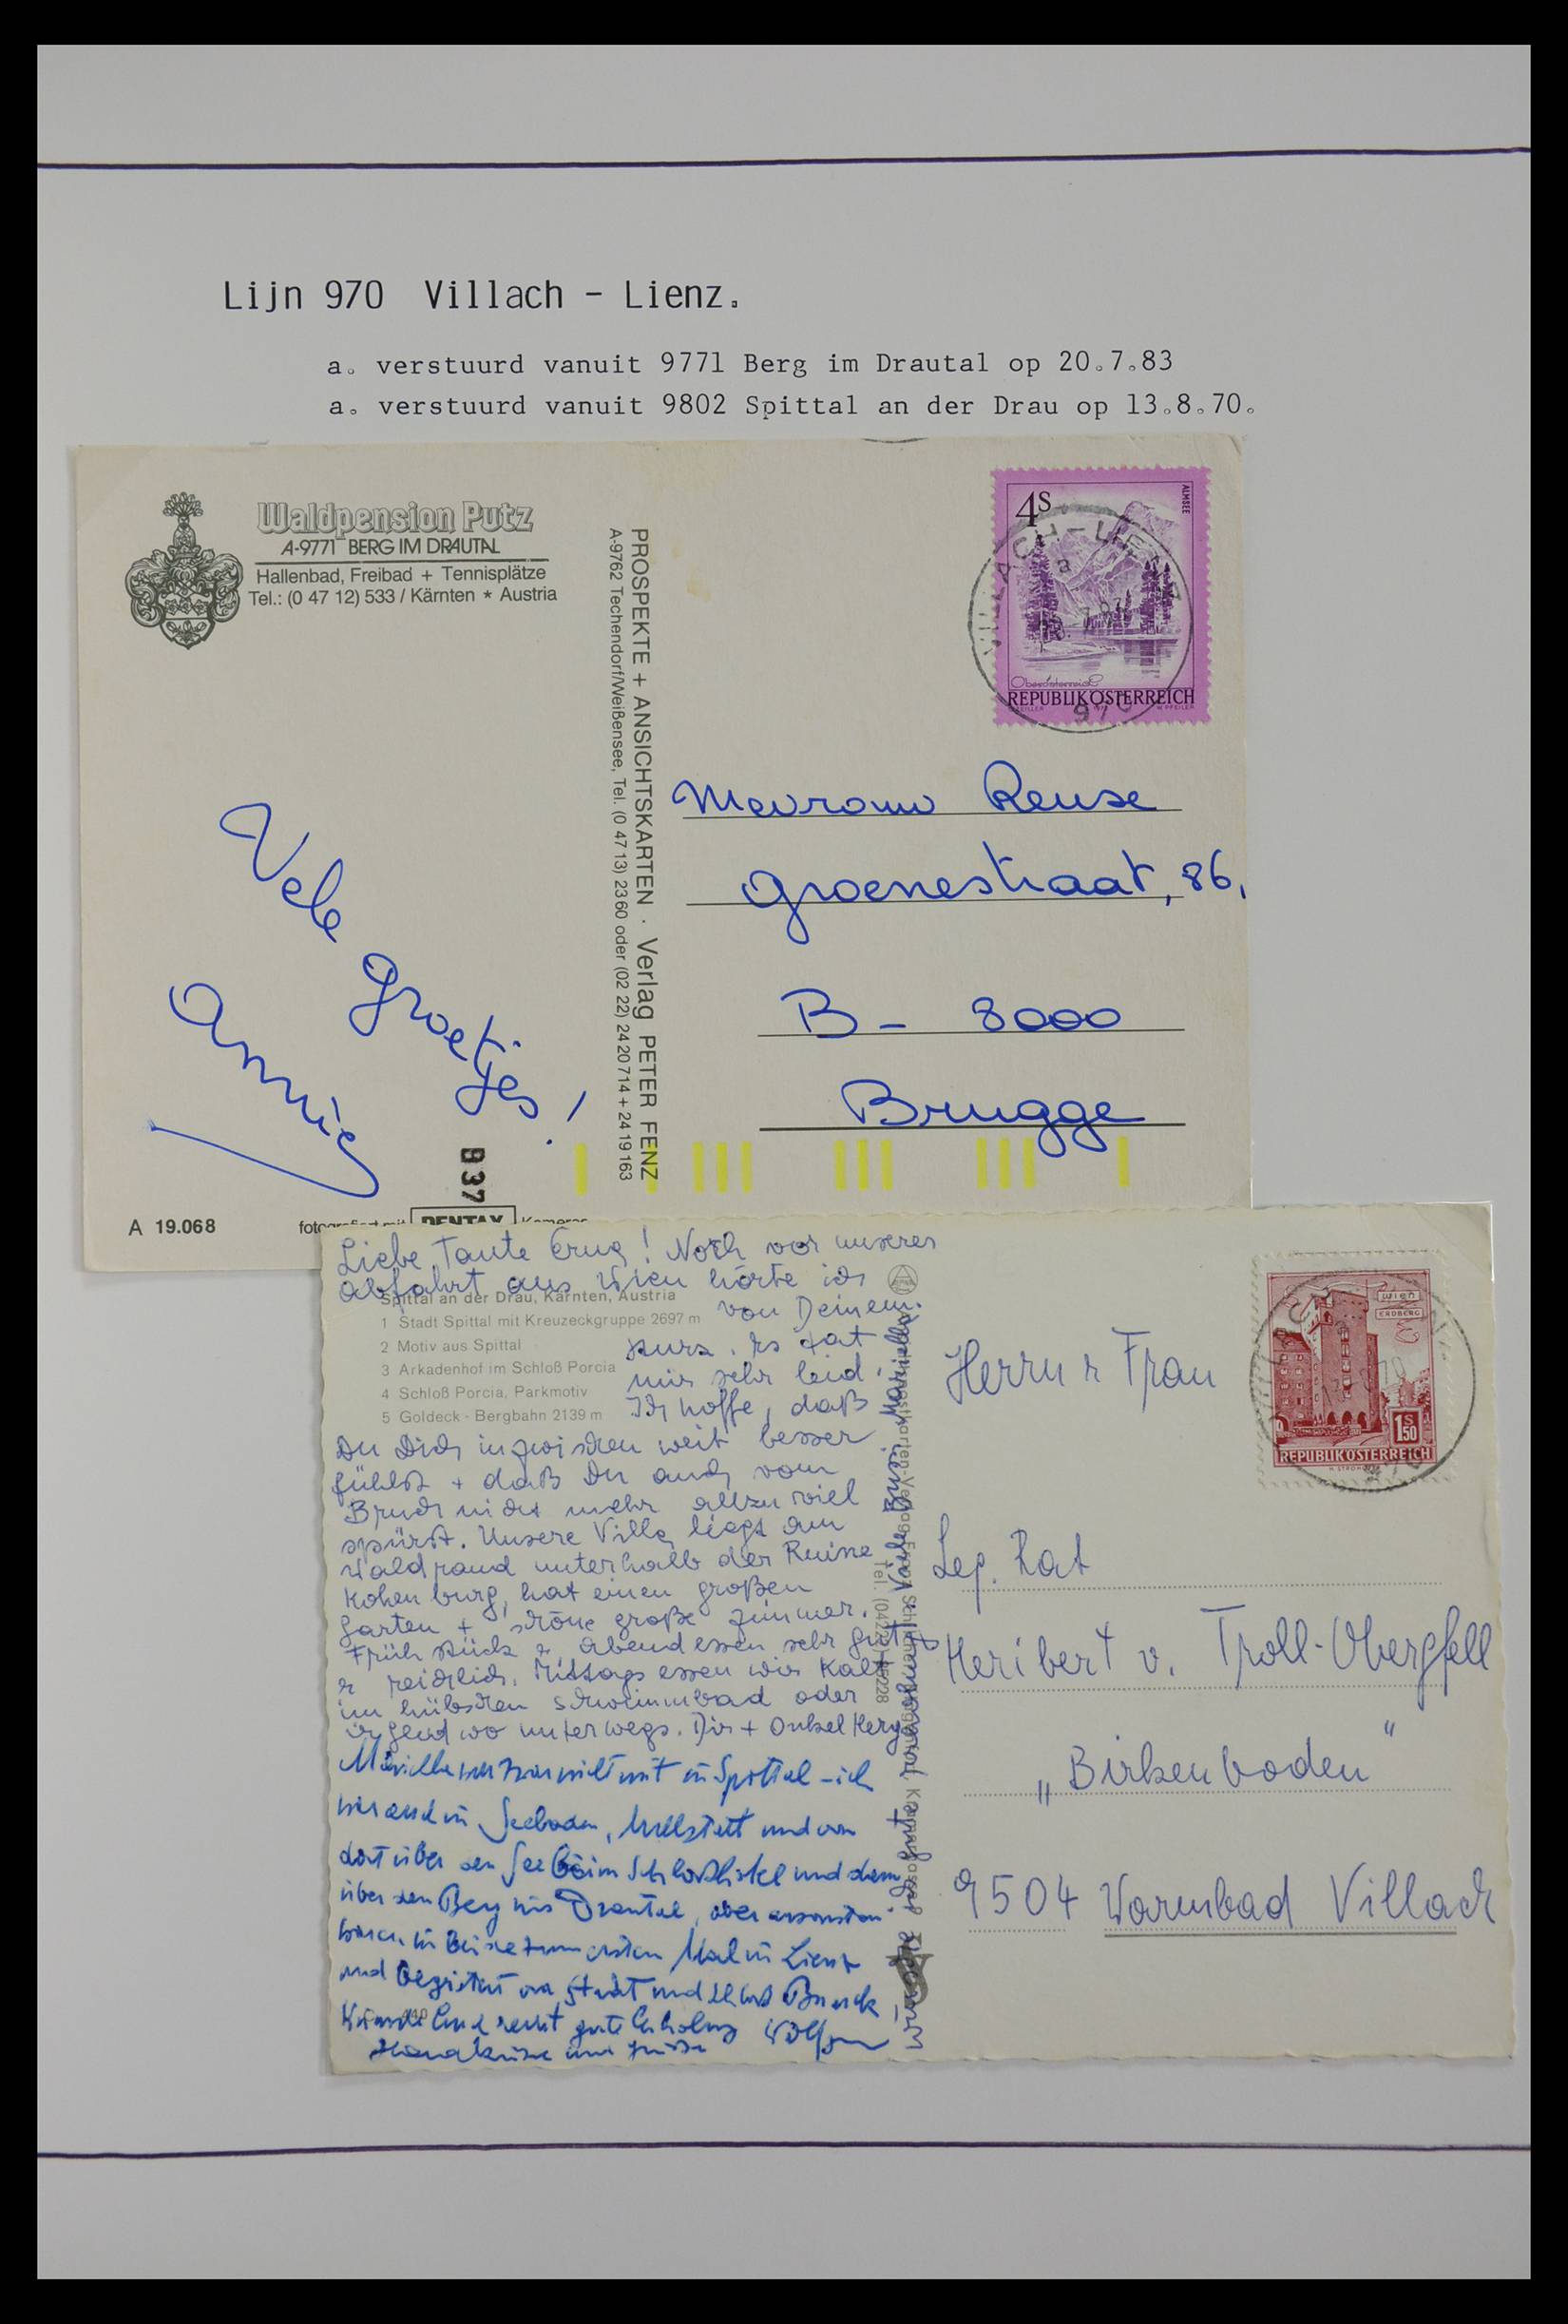 Lijn 970 Villach - Lienz.
a. verstuurd vanuit 9771 Berg im Drautal op 20.7.83
a. verstuurd vanuit 9802 Spittal an der Drau op 13.8.70.
Waldpension Putz
A-9771 BERG IM DRAUTAL
Hallenbad, Freibad + Tennisplätze
Tel.: (0 47 12) 533 / Kärnten * Austria
Vele groetjes!
Annie
937
A 19.068
fotografiert mit PENTAX Kameras
PROSPEKTE + ANSICHTSKARTEN · Verlag PETER FENZ
A-9762 Techendorf/Weißensee, Tel. (0 47 13) 23 60 oder (02 22) 24 20 714 + 24 19 163
4S
ALMSEE
Oberösterreich
REPUBLIK ÖSTERREICH
VILLACH - LIENZ
a
970
Mevrouw Reuse
Groenestraat, 86,
B - 8000
Brugge
Liebe Tante Erna! Noch vor unserer
Abfahrt aus Wien hörte ich
von Deinem
Sturz. Es tat
mir sehr leid.
Ich hoffe, daß
Du Dich inzwischen weit besser
fühlst + daß Du auch vom
Bruch nicht mehr allzu viel
spürst. Unsere Villa liegt am
Waldrand unterhalb der Ruine
Hohenburg, hat einen großen
Garten + schöne große Zimmer.
Frühstück + Abendessen sehr gut
r reichlich. Mittags essen wir kalt
im hübschen Schwimmbad oder
irgendwo unterwegs. Dir + Onkel Hery
in Spittal - ich
war auch in Seeboden, Millstatt und von
dort über den See beim Schloßhotel und dann
über den Berg ins Drautal, aber ansonsten
waren wir beide zum ersten Mal in Lienz
und begeistert von Stadt und Schloß Bruck
recht gute Erholung
Handküsse und Grüße
Spittal an der Drau, Kärnten, Austria
1 Stadt Spittal mit Kreuzeckgruppe 2697 m
2 Motiv aus Spittal
3 Arkadenhof im Schloß Porcia
4 Schloß Porcia, Parkmotiv
5 Goldeck - Bergbahn 2139 m
Tel. (04222)
1S50
wien
ERDBERG
REPUBLIK ÖSTERREICH
Herrn r Frau
Leg. Rat
Heribert v. Troll-Obergfell
„Birkenboden"
9504 Warmbad Villach